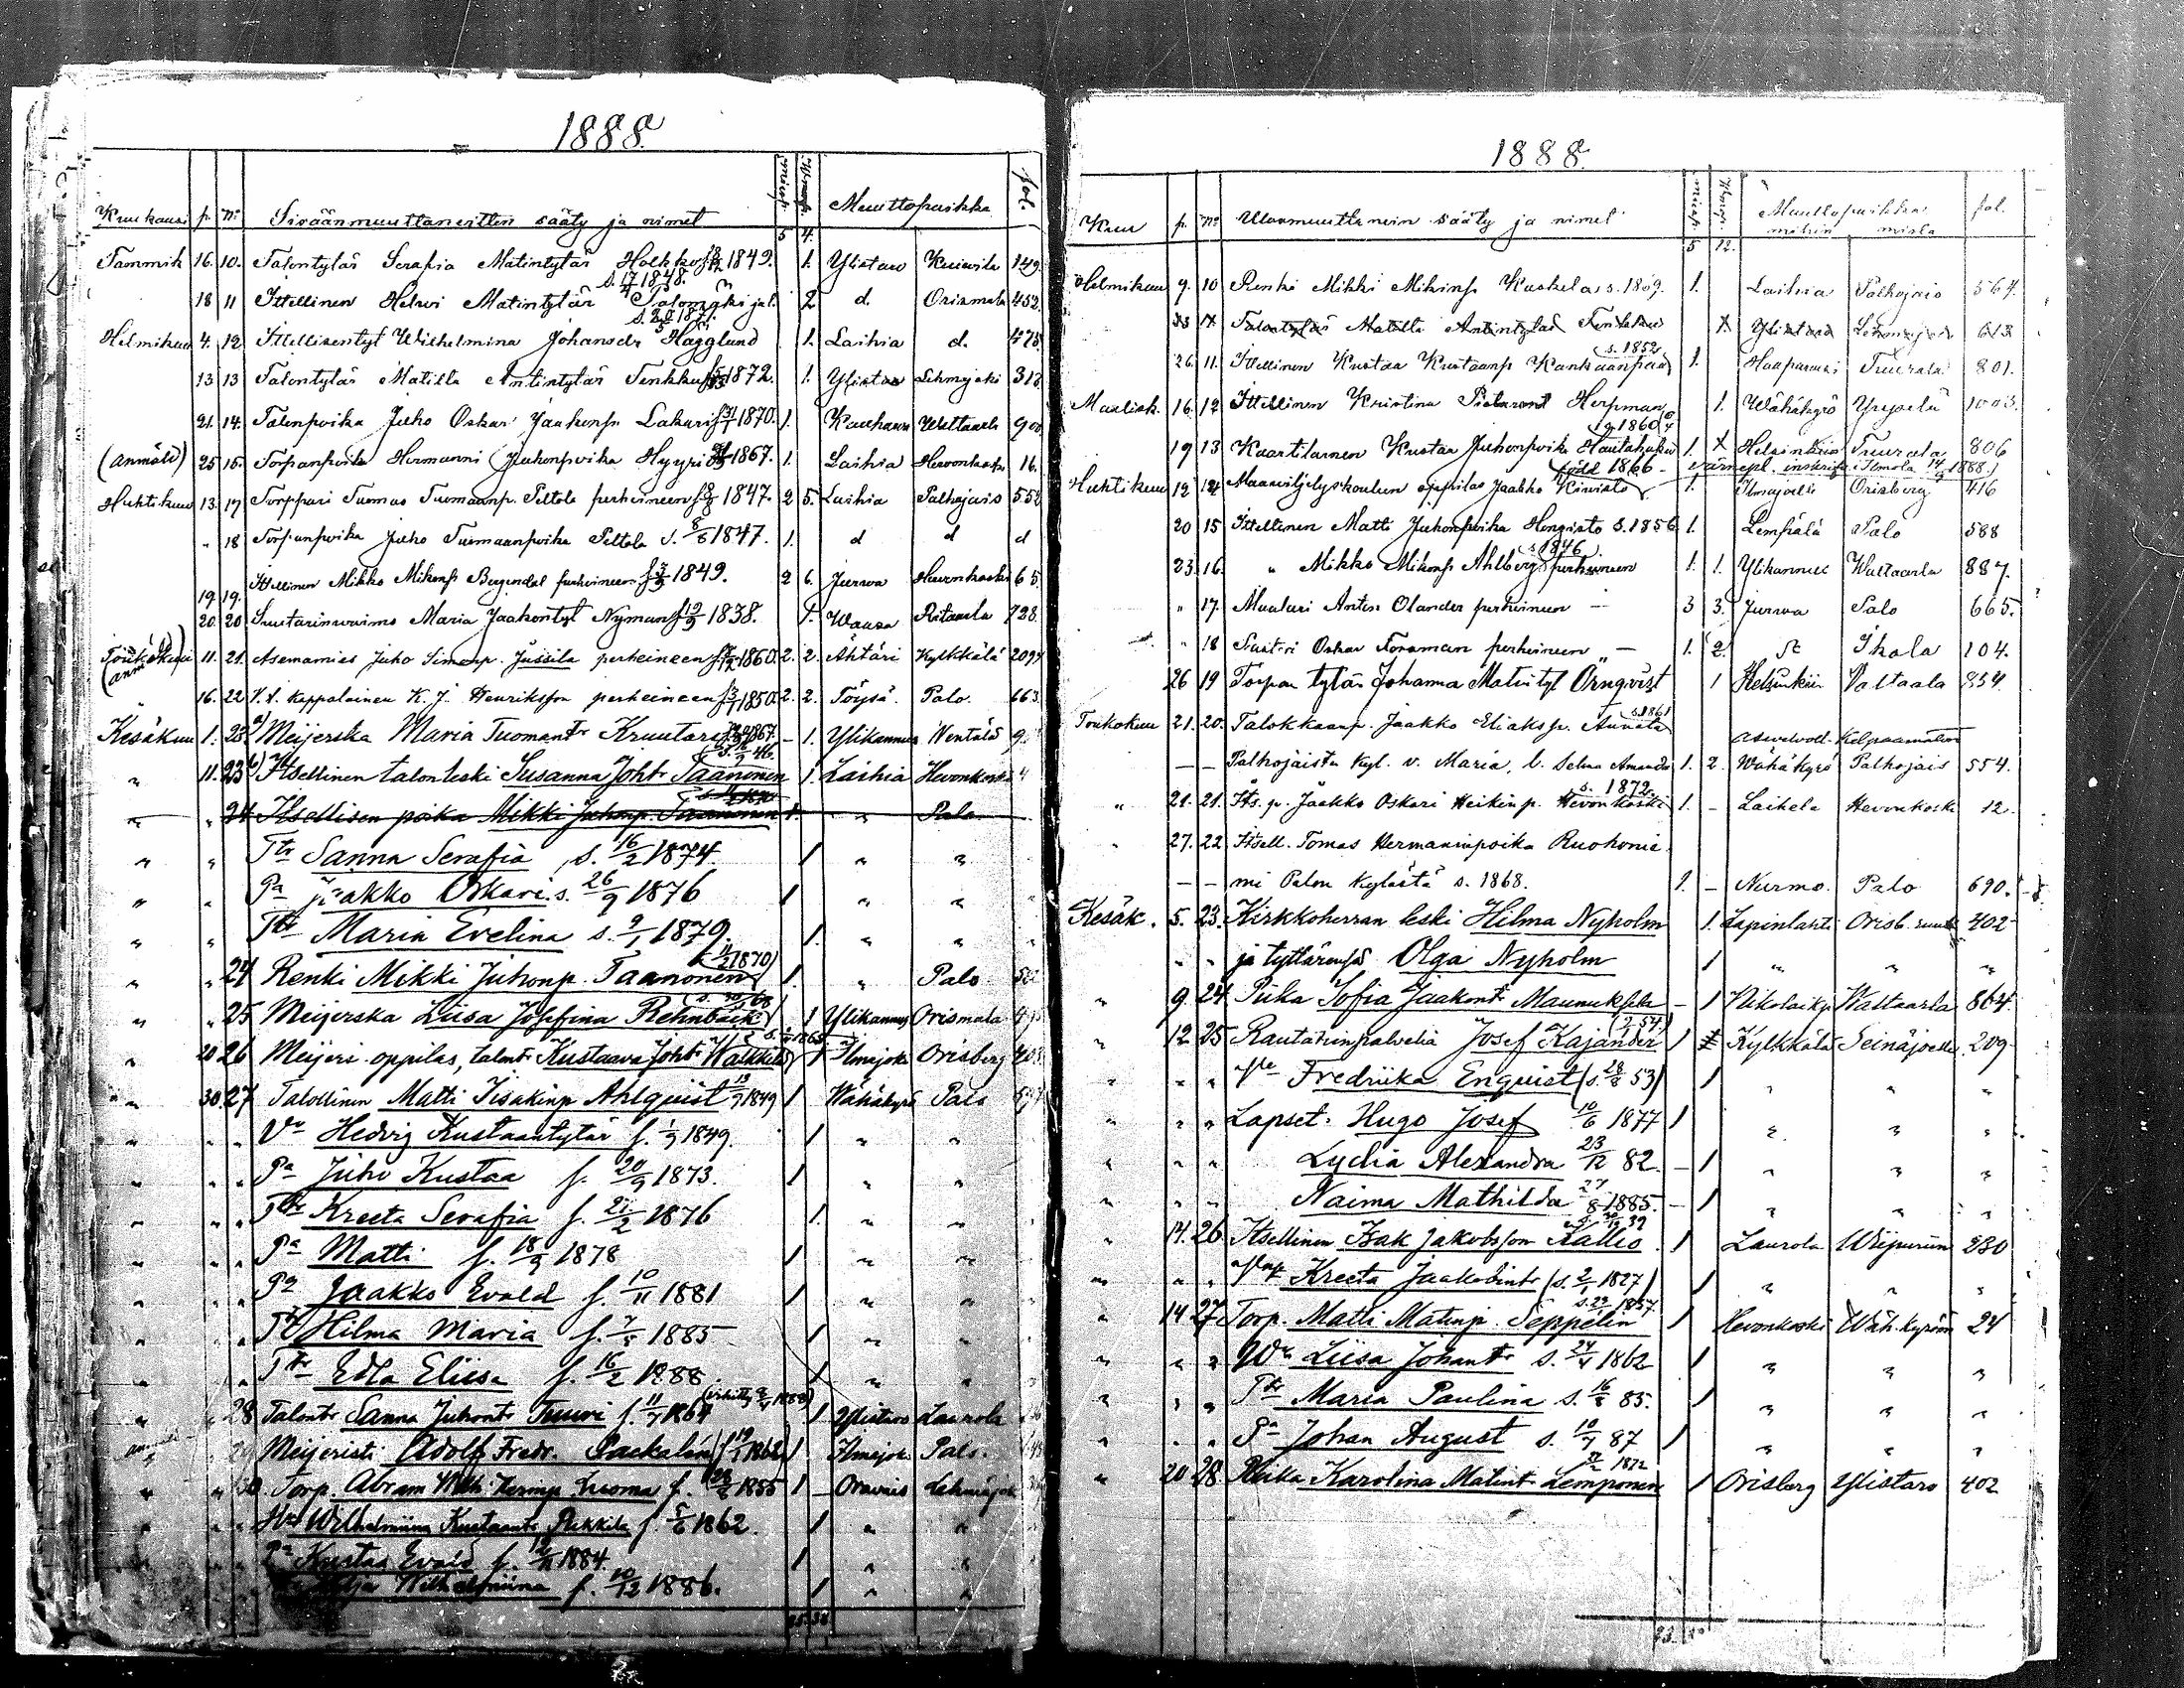 1888.
Kuukausi p. No Sisäänmuuttaneitten sääty ja nimet miesp. Muuttopaikka fol.
5 4.
Tammik 16. 10. Talontytär Serafia Matintytär Holkko 1849. 1. Ylistaro 149
s. 17/4 1848.
18 11 Ittellinen Helvi Matintytär Talomäki 2 d. Orismala 452.
Helmikuu 4. 12 Ittellisentyt Wilhelmina Johansdr Hägglund 1. Laihia d. 478.
13 13 Talontytär Matilta Antintytär Tenkku 1872. 1. Ylistaro Lehmäjoki 313
21. 14. Talonpoika Juho Oskar Jaakonp. Lakari 1870. 1. Kauhava Waltaala 900
(anmäld) 25 15. Torpanpoika Hermanni Juhonpoika Hyyri 1867. 1. Laihia Hevonkoski 16.
Huhtikuu 13. 17 Torppari Tuomas Tuomaanp. Peltola perheineen 1847. 2 5. Laihia Palhojais 552
" 18 Torpanpoika Juho Tuomaanpoika Peltola s. 8/6 1847. 1. d d d
19. 19. Ittellinen Mikko Mikonp perheineen 1849. 2 6. Jurva Hevonkoski 65.
20. 20 Suutarinvaimo Maria Jaakontyt Nyman 1838. 1. Waasa Ritaala 728.
Toukokuu 11. 21. Asemamies Juho Simonp. Jussila perheineen 1860. 2. 2. Ähtäri Kylkkälä 209
16. 22 V.t. kappalainen K. J. Henriksson perheineen 1850. 2. 2. Töysä. Palo. 663.
Kesäkuu 1. 23 a) Meijerska Maria Tuomantr Kruutari 1867. - 1. Ylikannus Wentälä 9
" 11. 23 b) Itsellinen talon leski Susanna Johtr Taanonen 1. Laihia Hevonkoski 4
" 24 Itsellisen poika Mikki Juhonp. Taanonen 1. " Palo
" " Ttr Sanna Serafia s. 16/2 1874. 1 " "
" " Pa Jaakko Oskari s. 26/9 1876 1 " "
" " Ttr Maria Evelina s. 9/1 1879 1. " "
" 24 Renki Mikki Juhonp. Taanonen 1870) 1. " Palo
" " 25 Meijerska Liisa Josefina Rehnbäck 1 Ylikannus Orismala
" 20 26 Meijeri-oppilas, talontr Kustaava Johtr Walkkila 1865 1 Ilmajoki Orisberg 403
" 30. 27 Talollinen Matti Iisakinp Ahlquist 1849 1 Wähäkyrö Palo
" " Vo Hedvig Kustaantytär f. 1/9 1849. 1 " "
" " Pa Juho Kustaa f. 20/9 1873. 1 " "
" " Ttr Kreeta Serafia f. 21/2 1876 1. " "
" " Pa Matti f. 18/9 1878 1 " "
" " Pa Jaakko Evald f. 10/11 1881 1 " "
" " Tr Hilma Maria f. 1885 1 " "
" " Ttr Edla Eliisa f. 16/2 1888. 1 " "
" " 28 Talontr Sanna Juhontr Tuuri f. 11/7 1864 1 Ylistaro Laurola
29 Meijeristi Adolf Fredr. Packalén 1862) 1. Ilmajok Palo.
" " 30 Torp. Abram Luoma f. 1855 1 - Oravais Lehmäjok
" " Wilhelmiina Kustaantr f. 5/6 1862. 1 " "
" " Pa Kustaa Evald f. 1884. 1 " "
Wilhelmiina f. 10/12 1886. 1 " "
1888.
Kuu p. No Ulosmuuttanein sääty ja nimet miesp. Muuttopaikka fol.
mihin mistä
5 12.
Helmikuu 9. 10 Renki Mikki Mikinp Kaskela s. 1869. 1. Laihia Palhojais 564.
Talontytär Matilta Antintytär Tenkku Ylistaro Lehmäjoki 613
s. 1852
26. 11. Ittellinen Kustaa Kustaanp Kankaanpää 1. Haapavesi Tuurala 801.
Maalisk. 16. 12 Ittellinen Kristina Herpman 1. Wähäkyrö Yryselä 1003.
19 13 Kaartilainen Kustaa Juhonpoika Hautahuhta 1. X Helsinkiin Tuurala 806
född 1866 - värnepl. inskrifn. Ilmola 14/9 1888.)
Huhtikuu 12 14 Maanviljelyskoulun oppilas Jaakko Kivistö 1. Ilmajoelle Orisberg 416
20 15 Ittellinen Matti Juhonpoika Hongisto s. 1856 1. Lempälä Palo 588
s. 1846
23. 16. " Mikko Mikonp Ahlberg perheineen 1. 1. Ylikannus Waltaala 887.
" 17. Maalari Anten Olander perheineen - 3 3. Jurva Palo 665.
" 18 Suutari Oskar Forsman perheineen " - 1. 2. Ikola 104.
26 19 Torpan tytär Johanna Matintyt Örnqvist 1 Helsinkiin Valtaala 854
Toukokuu 21. 20. Talokkaanp. Jaakko Eliaksp. Annala s. 1861
- - Palhojaisten kyl. v. Maria, l. Selma Amanda 1. 2. Wähäkyrö Palhojais 554.
s. 1872.
" 21. 21. Its. p. Jaakko Oskari Heikinp. Hevonkoski 1. - Laihela Hevonkoski 12.
" 27. 22 Itsell. Tomas Hermanninpoika Ruohonie
- - mi Palon kylästä s. 1868. 1. - Nurmo. Palo 690.
Kesäk. 5. 23. Kirkkoherran leski Hilma Nyholm 1. Lapinlahti Orisb. 402
" " ja tyttärensä Olga Nyholm 1 " " "
" 9. 24 Piika Sofia Jaakontr Maunuksela - 1 Nikolaikp Waltaala 864.
" 12 25 Rautatienpalvelia Josef Kajander 1 Kylkkälä Seinäjoelle 209
" " " Vo Fredriika Enquist (s. 53) 1 " " "
" " " Lapset. Hugo Josef 10/6 1877 1 " " "
" " " Lydia Alexandra 23/12 82. - 1 " " "
" " " Naima Mathilda 27/8 1885. - 1 " " "
" 14. 26 Itsellinen Isak Jakobsson Kallio 1 Laurola Wiipuriin 230
" " " Kreeta Jaakobintr (s. 2/1 1827) 1 " " "
" 14 27 Torp. Matti Matinp. Seppelin 1 Hevonkoski Wäh. kyröön 24
" " " Wo Liisa Johantr s. 1862 1 " " "
" " " Ttr Maria Paulina s. 85. 1 " " "
" " " Pa Johan August s. 87 1 " " "
" 20 28 Piika Karolina Matint. Lemponen 1872 1 Orisberg Ylistaro 402